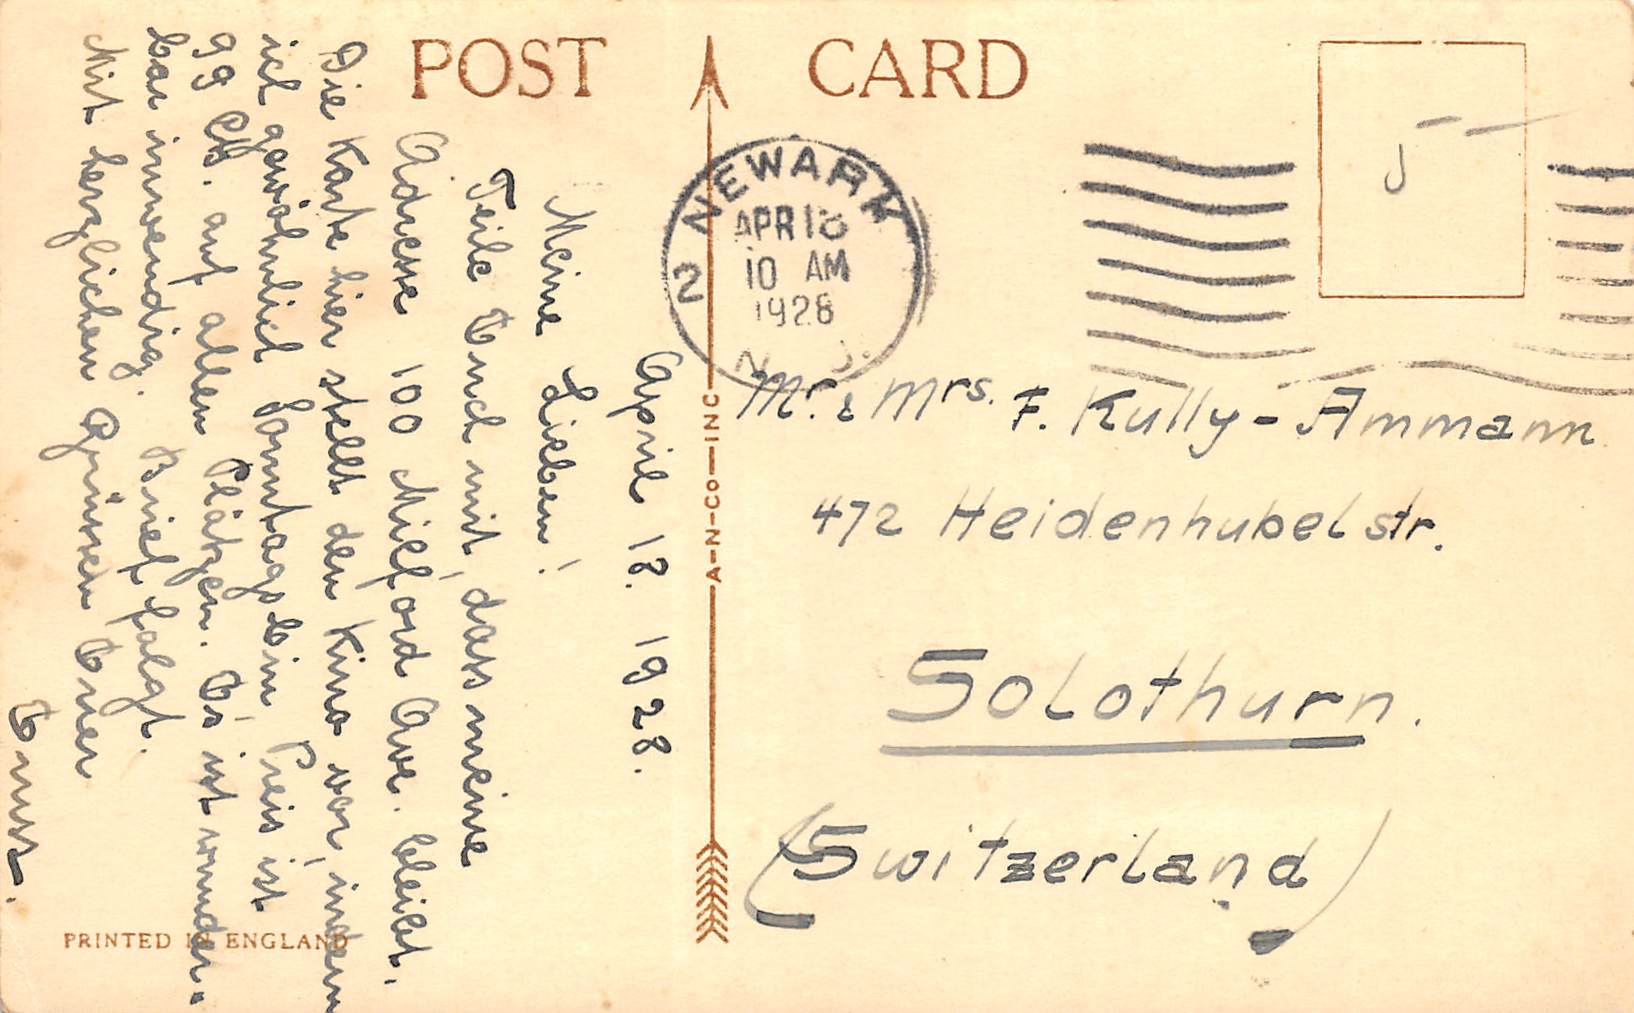 POST CARD
2 NEWARK N. J.
APR 18
10 AM
1928
April 18. 1928.
Meine Lieben!
Teile Euch mit, dass meine
Adresse 100 Milford Ave. bleibt.
Die Karte hier stellt den Kino vor, indem
ich gewöhnlich Sonntags bin, Preis ist
99 Cts. auf allen Plätzen. Es ist wunder-
bar inwendig. Brief folgt.
Mit herzlichen Grüssen Euer
Ernst.
A-N-CO-INC
Mr. & Mrs. F. Kully-Ammann
472 Heidenhubelstr.
Solothurn.
(Switzerland)
PRINTED IN ENGLAND